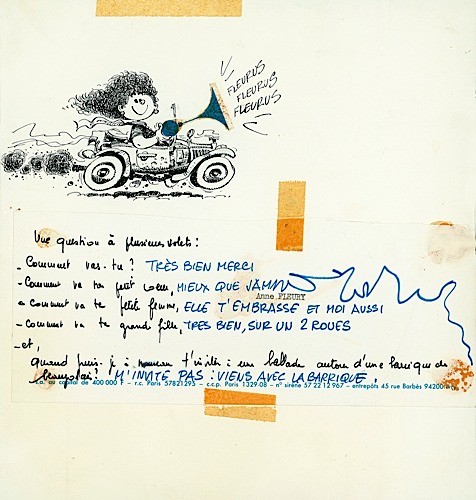 FLEURUS
FLEURUS
FLEURUS
Une question à plusieurs volets :
- Comment vas-tu ? TRÈS BIEN MERCI
- Comment va ton petit coeur, MIEUX QUE JAMAIS
Anne FLEURY
- Comment va ta petite femme, ELLE T'EMBRASSE ET MOI AUSSI
- Comment va ta grande fille, TRES BIEN, SUR UN 2 ROUES
- et,
quand puis-je à nouveau t'inviter à une ballade autour d'une barrique de
beaujolais ? M'INVITE PAS : VIENS AVEC LA BARRIQUE.
s.a. au capital de 400 000 F - r.c. Paris 57B21295 - c.c.p. Paris 1329-08 - n° sirène 57 22 12 967 - entrepôts 45 rue Barbès 94200